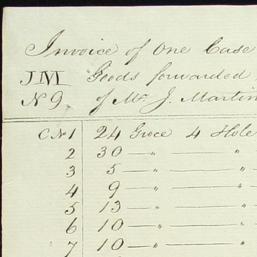 Invoice of One Case
JM Goods forwarded
N 9. of Mr J. Martin
C N 1 24 Groce 4 Hole
2 30 — " — "
3 5 — " — "
4 9 — " — "
5 13 — " — "
6 10 — " — "
7 10 — " — "